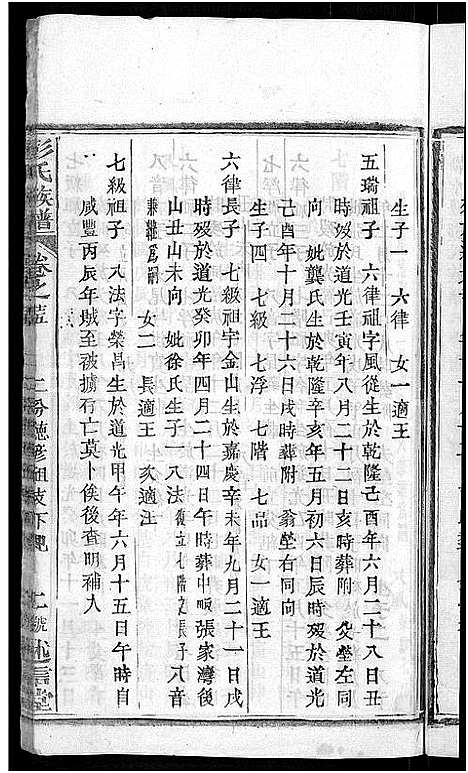 生子一 六律 女一適王
五瑜祖子 六律祖字風從生於乾隆己酉年六月二十八日丑
時歿於道光壬寅年八月二十二日亥時葬附 塋左同
向 妣龔氏生於乾隆辛亥年五月初六日辰時歿於道光
己酉年十月二十六日戌時葬附 翁塋右同向
生子四 七級 七浮 七階 七品 女一適王
六律長子 七級祖字金山生於嘉慶辛未年九月二十一日戌
時歿於道光癸卯年四月二十四日午時葬中 張家灣後
山丑山未向 妣徐氏生子一八法 復立七階之長子八音
兼繼爲嗣 女二 長適王 次適汪
七級祖子 八法字榮昌生於道光甲午年六月十五日午時自
咸豐丙辰年賊至被擄存亡莫卜俟後查明補入
彭氏族譜 卷之 二分 彥祖支下 號 述信堂